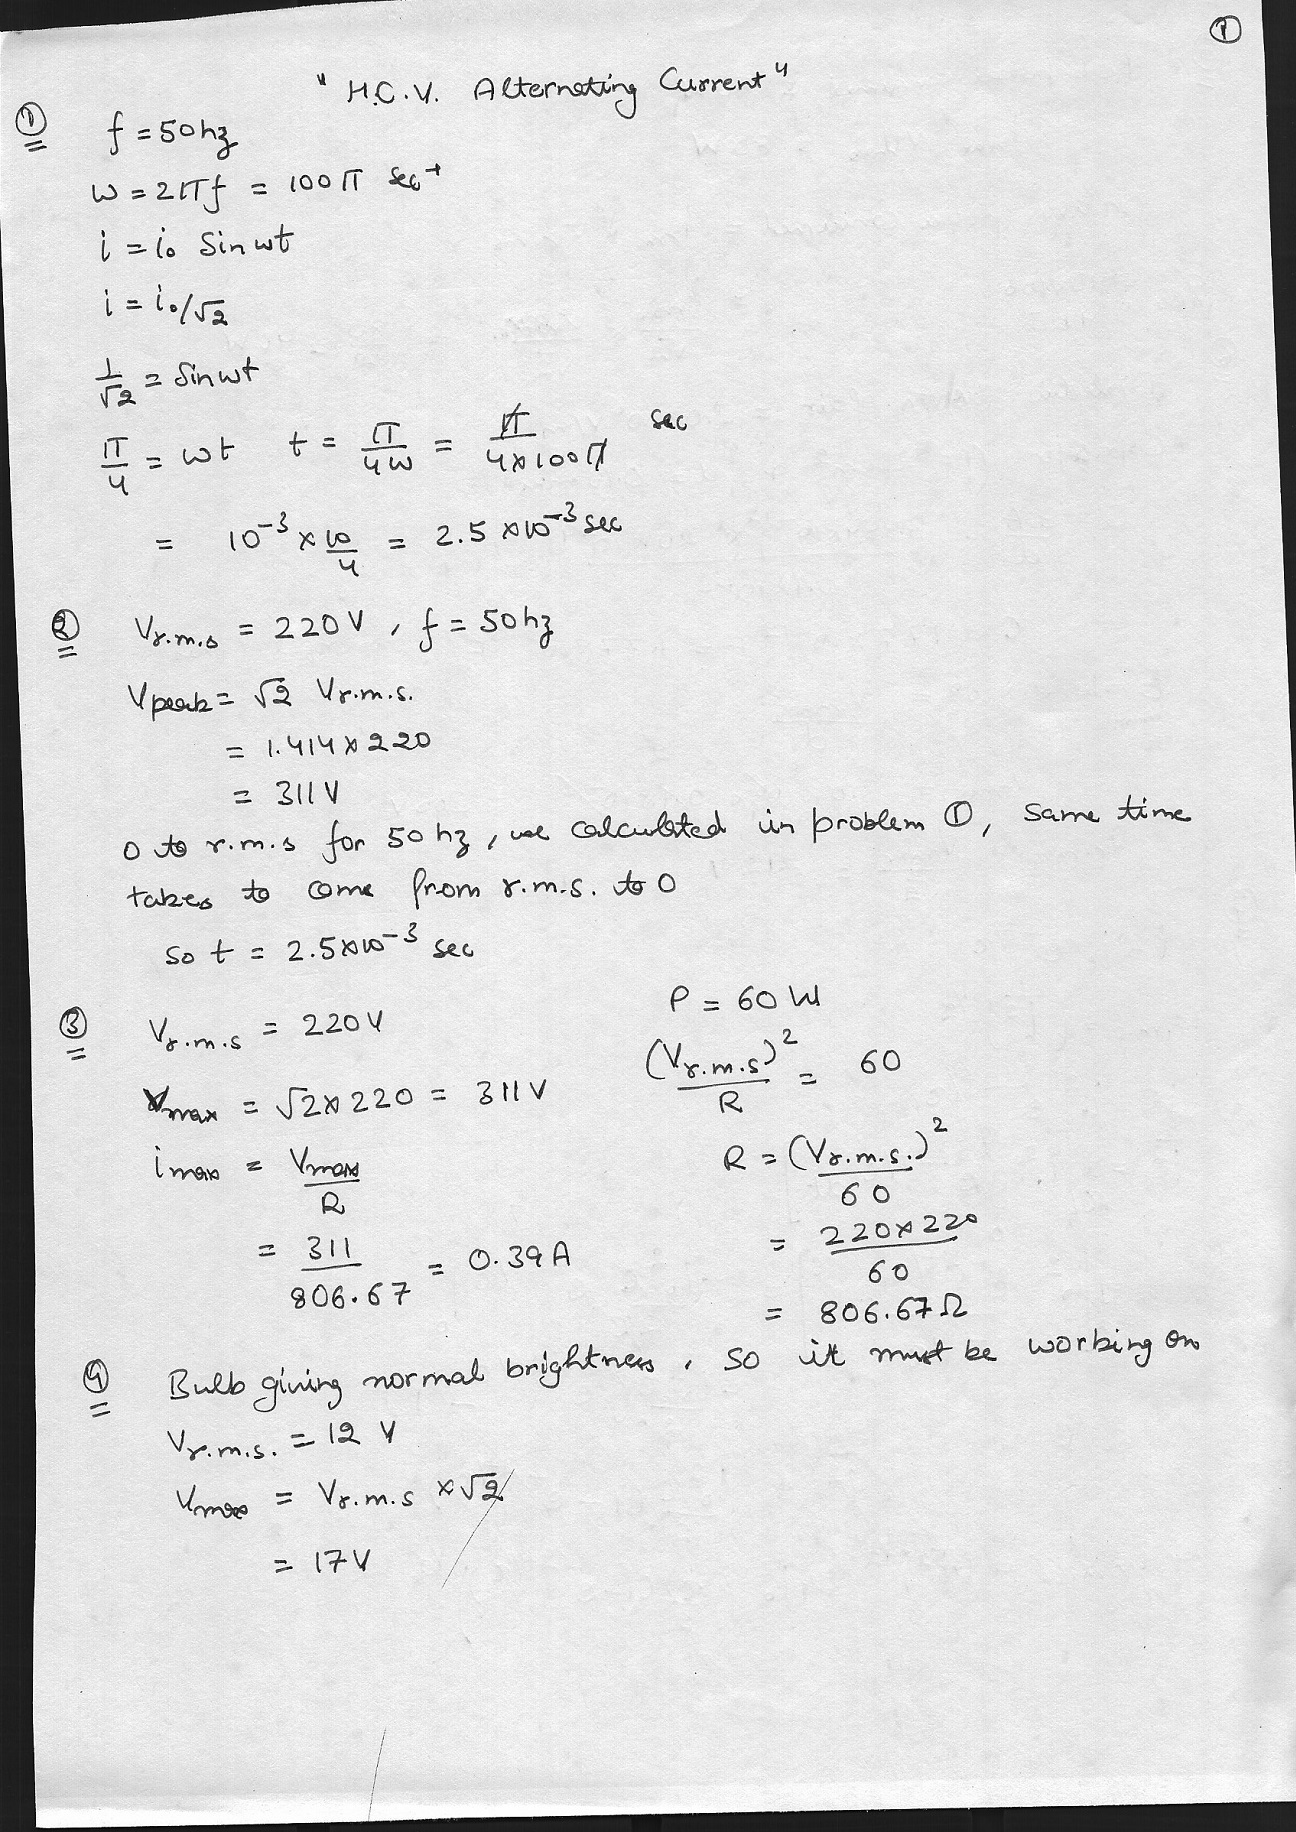 ①
"H.C.V. Alternating Current"
① f = 50hz
w = 2πf = 100π sec⁻¹
i = i₀ Sin wt
i = i₀/√2
1/√2 = Sin wt
π/4 = wt t = π/4w = π/4×100π sec
= 10⁻³ × 10/4 = 2.5 × 10⁻³ sec
② Vr.m.s = 220V, f = 50hz
Vpeak = √2 Vr.m.s.
= 1.414 × 220
= 311V
0 to r.m.s for 50hz, we calculated in problem ①, same time
takes to come from r.m.s. to 0
so t = 2.5×10⁻³ sec
③ Vr.m.s = 220V
Vmax = √2×220 = 311V
imax = Vmax/R
= 311/806.67 = 0.39A
P = 60W
(Vr.m.s)²/R = 60
R = (Vr.m.s.)²/60
= 220×220/60
= 806.67Ω
④ Bulb giving normal brightness, so it must be working on
Vr.m.s. = 12 V
Vmax = Vr.m.s × √2
= 17V